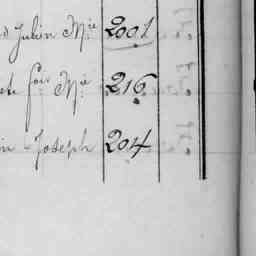 Julien Mie 2001
fois Mie 216
Joseph 204